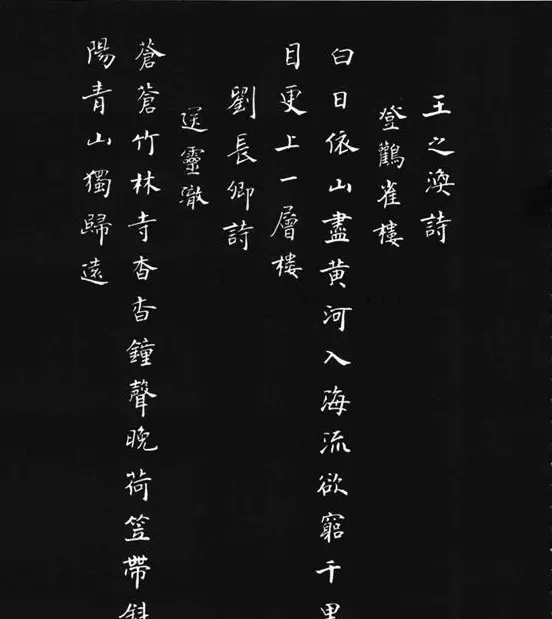 王之渙詩
登鸛雀樓
白日依山盡黃河入海流欲窮千里
目更上一層楼
劉長卿詩
送靈澈
蒼蒼竹林寺杳杳鐘聲晚荷笠帶斜
陽青山獨歸遠